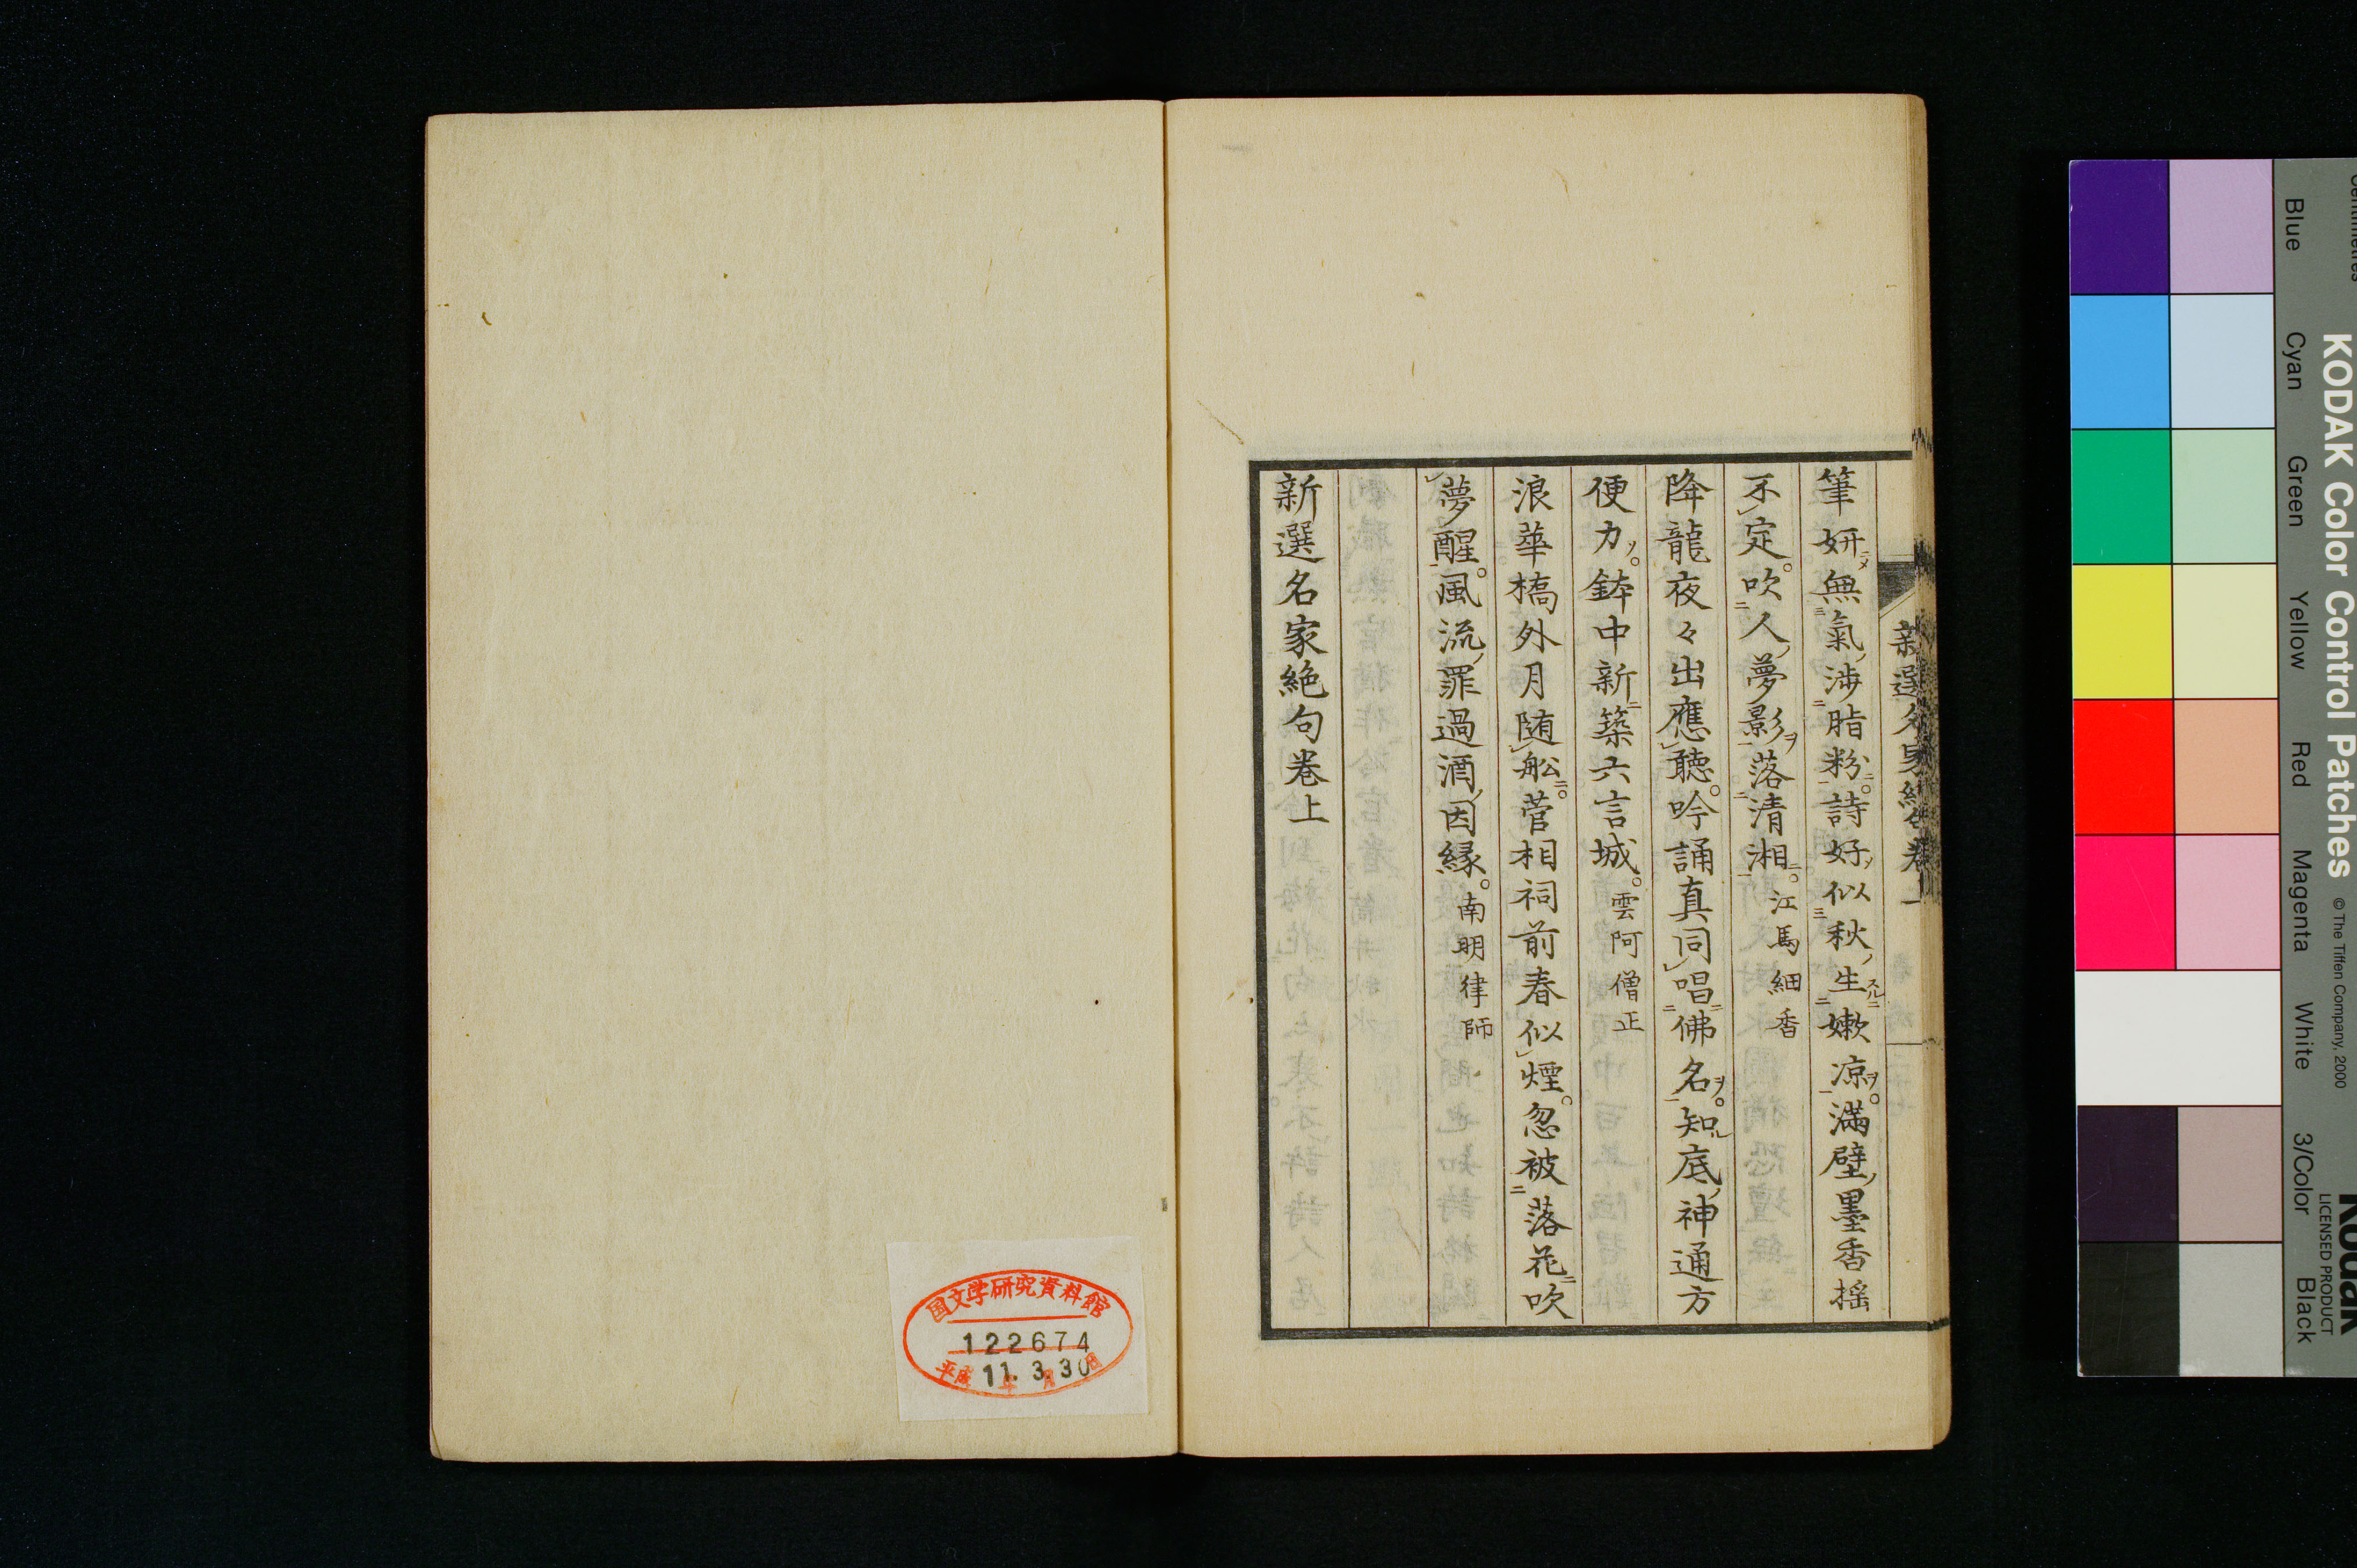 筆妍無氣渉脂粉詩好似秋生嫩凉滿壁墨香揺
不定吹人夢影落清湘江馬細香
降龍夜々出應聽吟誦真同唱佛名知底神通方
便力鉢中新築六言城雲阿僧正
浪華橋外月随舩菅相祠前春似煙忽被落花吹
夢醒風流罪過酒因縁南明律師
新選名家絶句巻上
国文学研究資料館
122674
平成11年3月30日
KODAK Color Control Patches
© The Tiffen Company, 2000
Kodak
LICENSED PRODUCT
Blue
Cyan
Green
Yellow
Red
Magenta
White
3/Color
Black